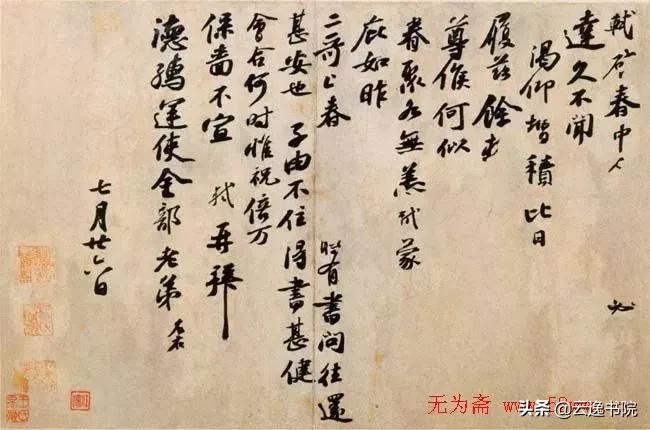 軾啓春中人 必
達久不聞
渴仰增積比日
履茲餘
尊候何似
眷聚各無恙軾蒙
庇如昨
二哥上春 時有書問往還
甚安也 子由不住得書甚健
會合何時惟祝倍万
保嗇不宣 軾再拜
德孺運使金部老弟 左右
七月廿六日
无为斋
头条 @云逸书院